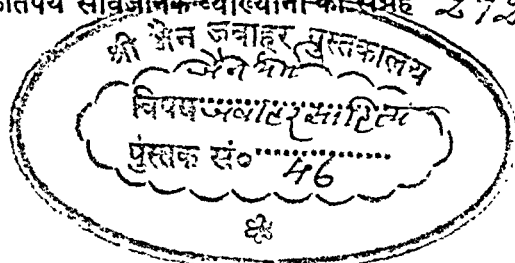 कतिपय सार्वजनिक व्याख्यानों का संग्रह
श्री जैन जवाहर पुस्तकालय
विषय जवाहर साहित्य
पुस्तक सं० 46